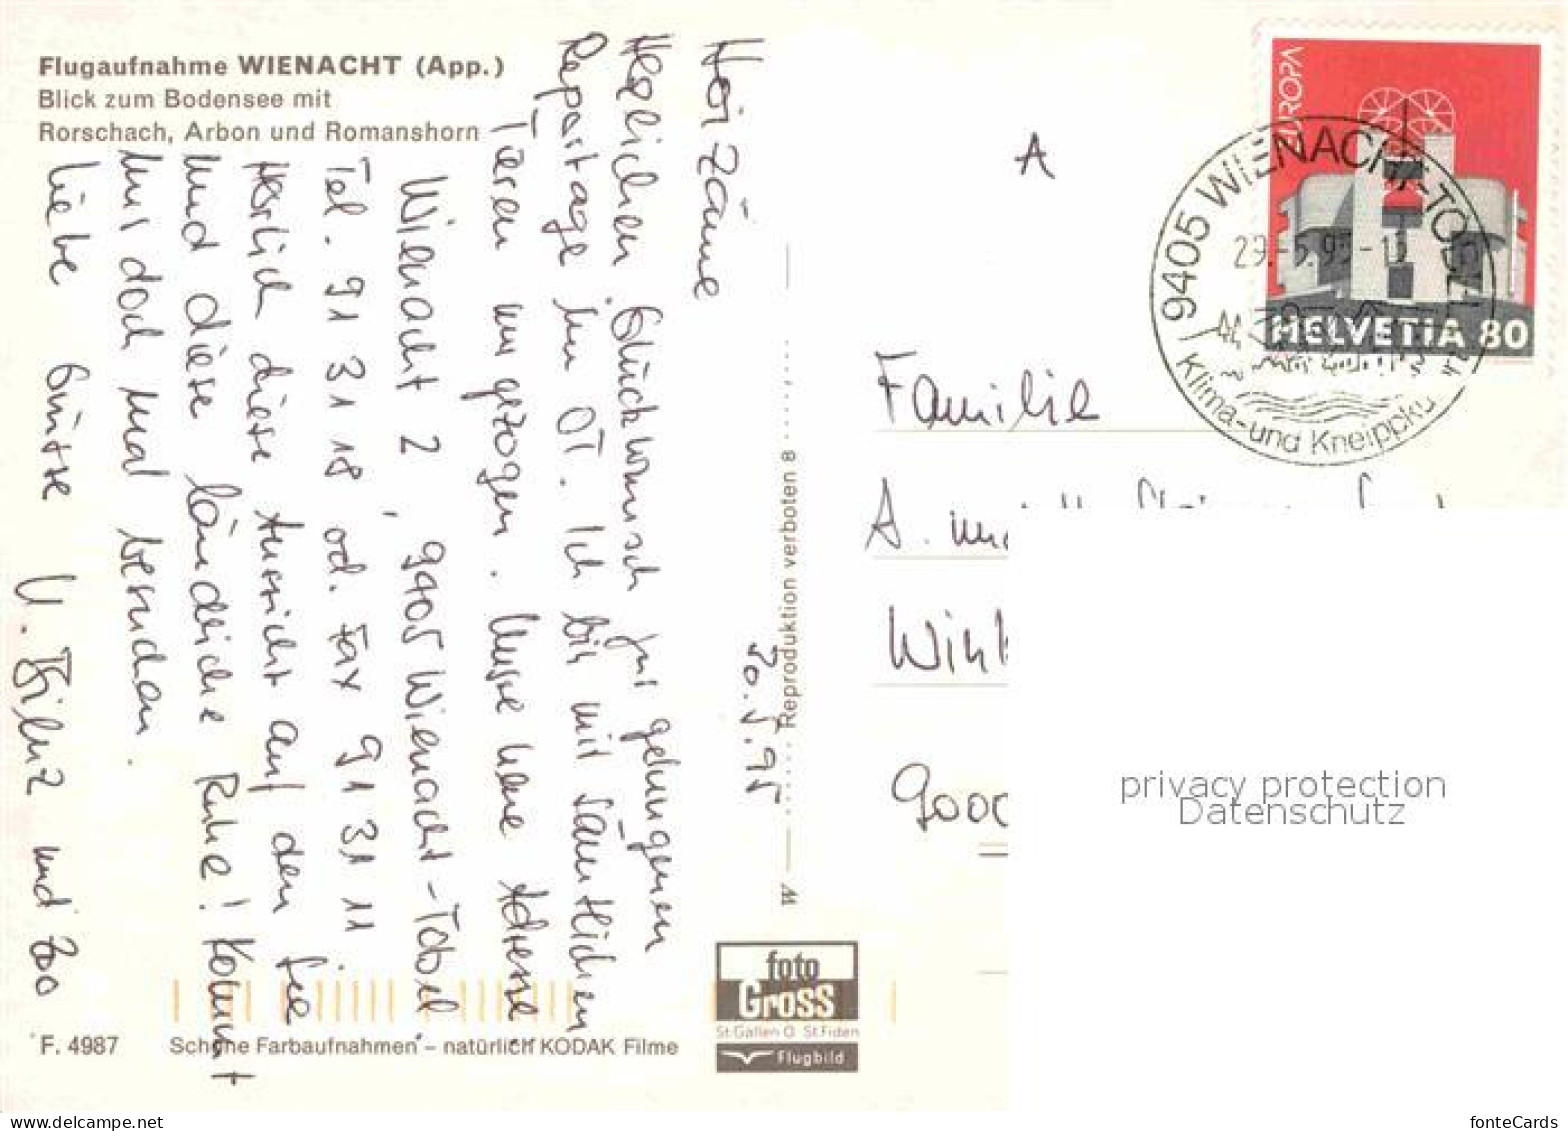 Flugaufnahme WIENACHT (App.)
Blick zum Bodensee mit
Rorschach, Arbon und Romanshorn
Hoi zäme
Herlichen Glückwunsch zur gelungenen
Reportage im OT. Ich bin mit sämtlichen
Tieren umgezogen. Unsere neue Adresse:
Wienacht 2, 9405 Wienacht-Tobel.
Tel. 91 31 18 od. Fax 91 31 11
Herlich diese Aussicht auf den See
und diese ländliche Ruhe! Kommt
uns doch mal besuchen.
Liebe Grüsse U. und Zoo
30.5.95
Reproduktion verboten 8
EUROPA
HELVETIA 80
9405 WIENACHT-TOBEL
Klima- und Kneippku
A
Familie
A.
900
privacy protection
Datenschutz
foto
GROSS
St.Gallen O St.Fiden
Flugbild
F. 4987
Schöne Farbaufnahmen – natürlich KODAK Filme
www.delcampe.net
fonteCards